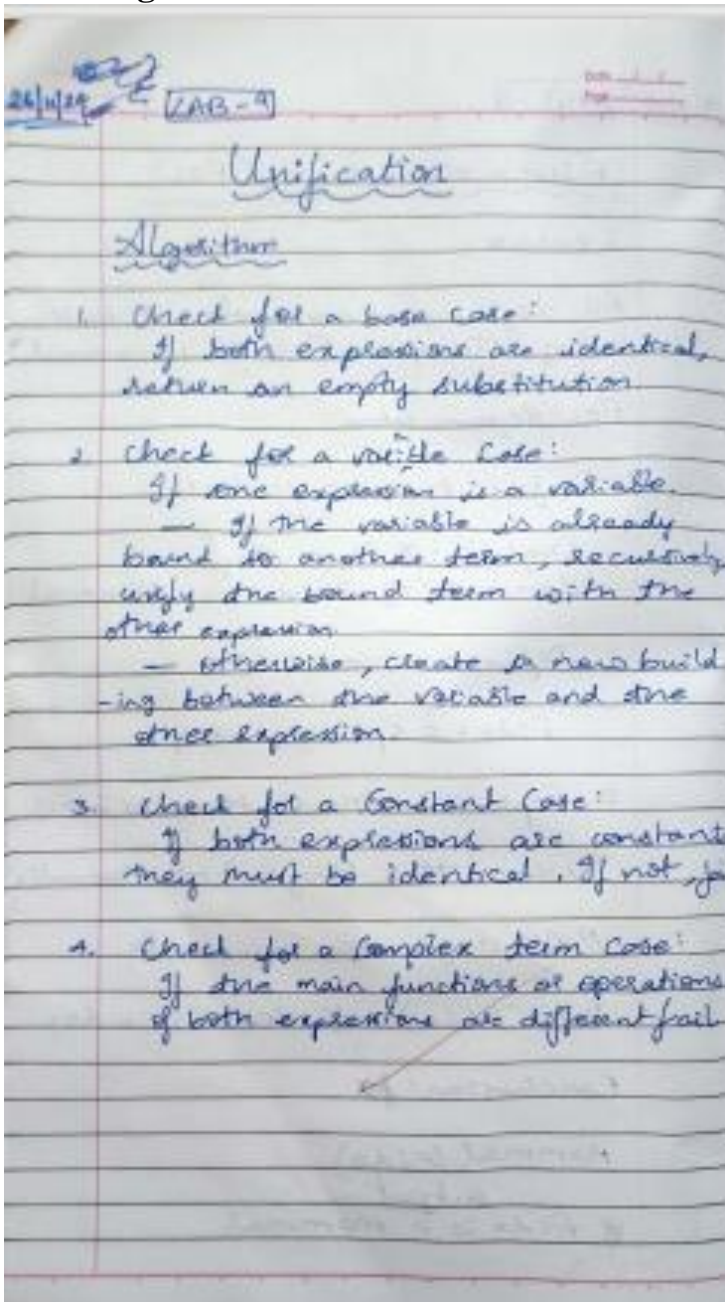 26/11/24
LAB-9
Date
Page
Unification
Algorithm
1. Check for a base case:
If both expressions are identical,
return an empty substitution
2. Check for a varible Case:
If one expression is a variable.
- If the variable is already
bound to another term, recursively
unify the bound term with the
other expression.
- otherwise, create a new build
-ing between the variable and the
other expression.
3. Check for a Constant Case:
If both expressions are constant
they must be identical, If not,
4. Check for a Complex term Case:
If the main functions or operations
of both expressions are different fail